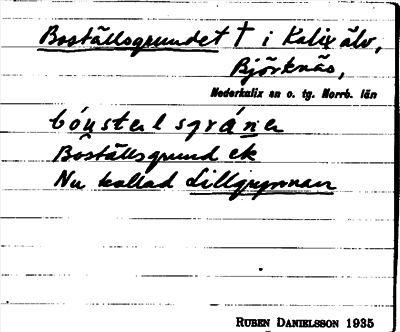 Boställsgrundet † i Kalix älv,
Björknäs,
Nederkalix sn o. tg. Norrb. län
Boställsgrund ek
Nu kallad Lillgrynnan
RUBEN DANIELSSON 1935